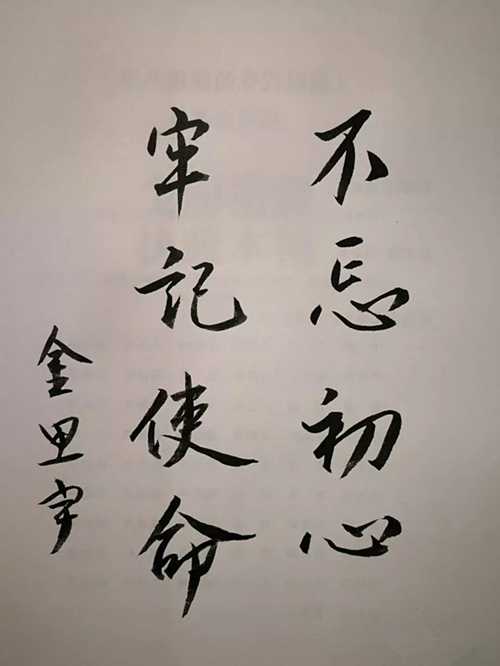 不忘初心
牢记使命
金思宇